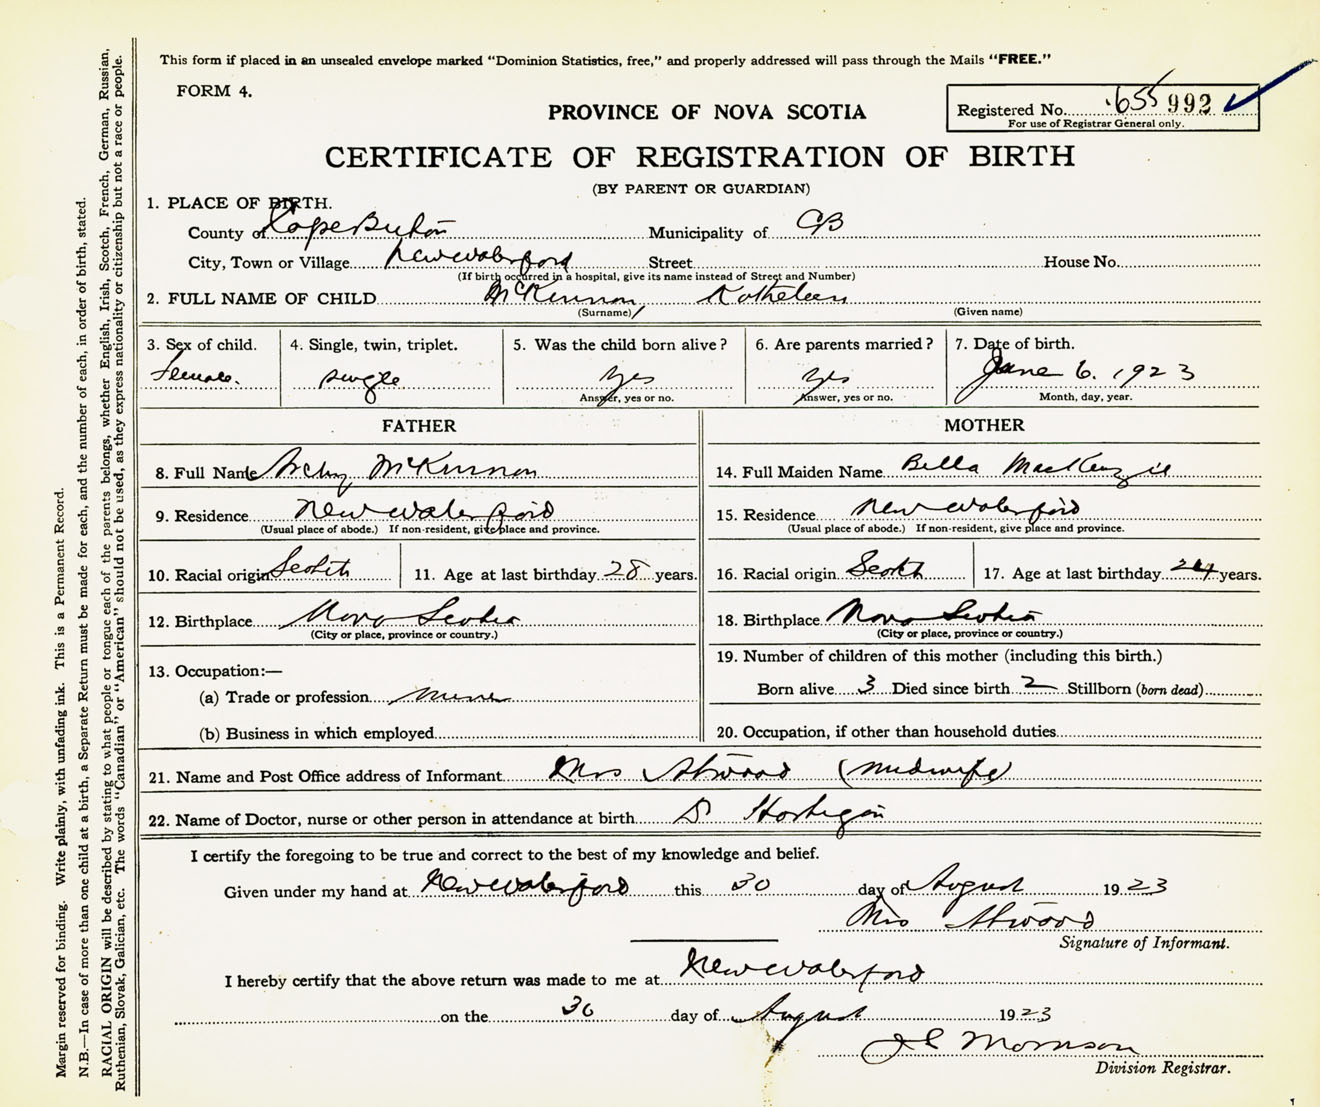 This form if placed in an unsealed envelope marked "Dominion Statistics, free," and properly addressed will pass through the Mails "FREE."
FORM 4.
PROVINCE OF NOVA SCOTIA
Registered No. 655 992
For use of Registrar General only.
CERTIFICATE OF REGISTRATION OF BIRTH
(BY PARENT OR GUARDIAN)
1. PLACE OF BIRTH.
County of Cape Breton Municipality of CB
City, Town or Village New Waterford Street House No.
(If birth occurred in a hospital, give its name instead of Street and Number)
2. FULL NAME OF CHILD McKinnon, Kathleen
(Surname) (Given name)
3. Sex of child. 4. Single, twin, triplet. 5. Was the child born alive? 6. Are parents married? 7. Date of birth.
Female. single Yes Yes June 6. 1923
Answer, yes or no. Answer, yes or no. Month, day, year.
FATHER MOTHER
8. Full Name Archy McKinnon 14. Full Maiden Name Bella MacKenzie
9. Residence New Waterford 15. Residence New Waterford
(Usual place of abode.) If non-resident, give place and province. (Usual place of abode.) If non-resident, give place and province.
10. Racial origin Scotch 11. Age at last birthday 28 years. 16. Racial origin Scotch 17. Age at last birthday 24 years.
12. Birthplace Nova Scotia 18. Birthplace Nova Scotia
(City or place, province or country.) (City or place, province or country.)
13. Occupation:— 19. Number of children of this mother (including this birth.)
(a) Trade or profession miner Born alive 3 Died since birth 2 Stillborn (born dead)
(b) Business in which employed 20. Occupation, if other than household duties
21. Name and Post Office address of Informant Mrs Atwood (midwife)
22. Name of Doctor, nurse or other person in attendance at birth Dr Hartigan
I certify the foregoing to be true and correct to the best of my knowledge and belief.
Given under my hand at New Waterford this 30 day of August 1923
Mrs Atwood
Signature of Informant.
I hereby certify that the above return was made to me at New Waterford
on the 30 day of August 1923
J C Morrison
Division Registrar.
Margin reserved for binding. Write plainly, with unfading ink. This is a Permanent Record.
N.B.—In case of more than one child at a birth, a Separate Return must be made for each, and the number of each, in order of birth, stated.
RACIAL ORIGIN will be described by stating to what people or tongue each of the parents belongs, whether English, Irish, Scotch, French, German, Russian,
Ruthenian, Slovak, Galician, etc. The words "Canadian" or "American" should not be used, as they express nationality or citizenship but not a race or people.